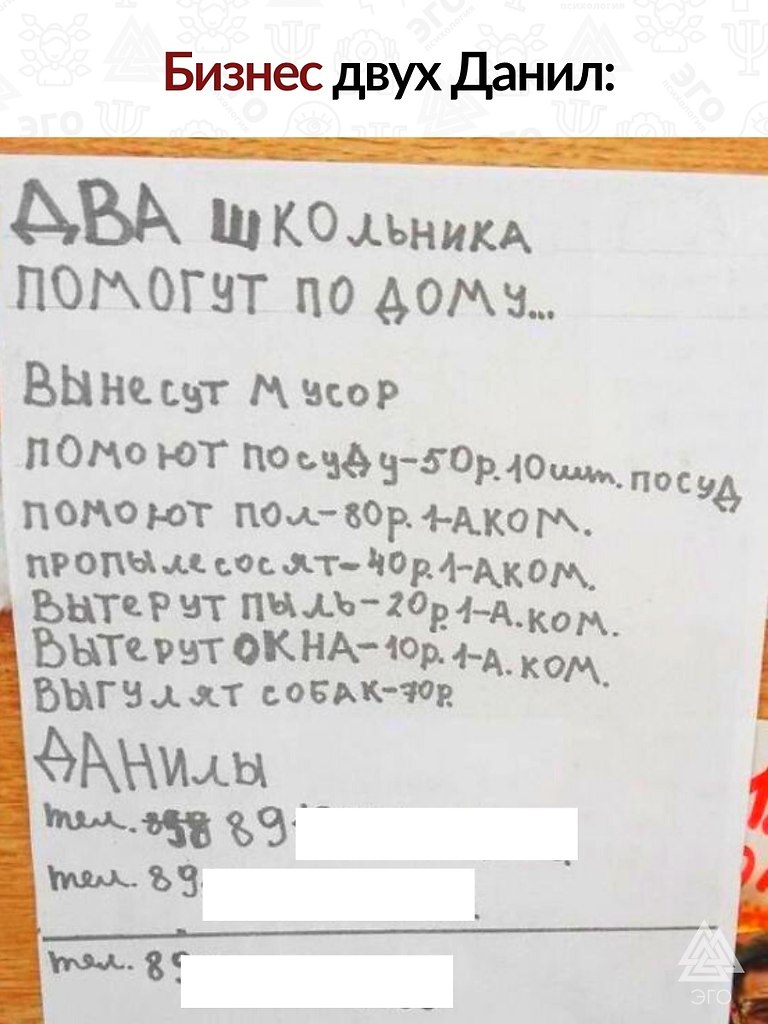 Бизнес двух Данил:
ДВА школьника
помогут по дому...
Вынесут мусор
помоют посуду-50р.10шт.посуд
помоют пол-80р.1-А.ком.
пропылесосят-40р.1-Аком.
Вытерут пыль-20р.1-А.ком.
Вытерут окна-10р.1-А.ком.
Выгулят собак-70р.
Данилы
тел. 89
тел. 89
тел. 89
ЭГО